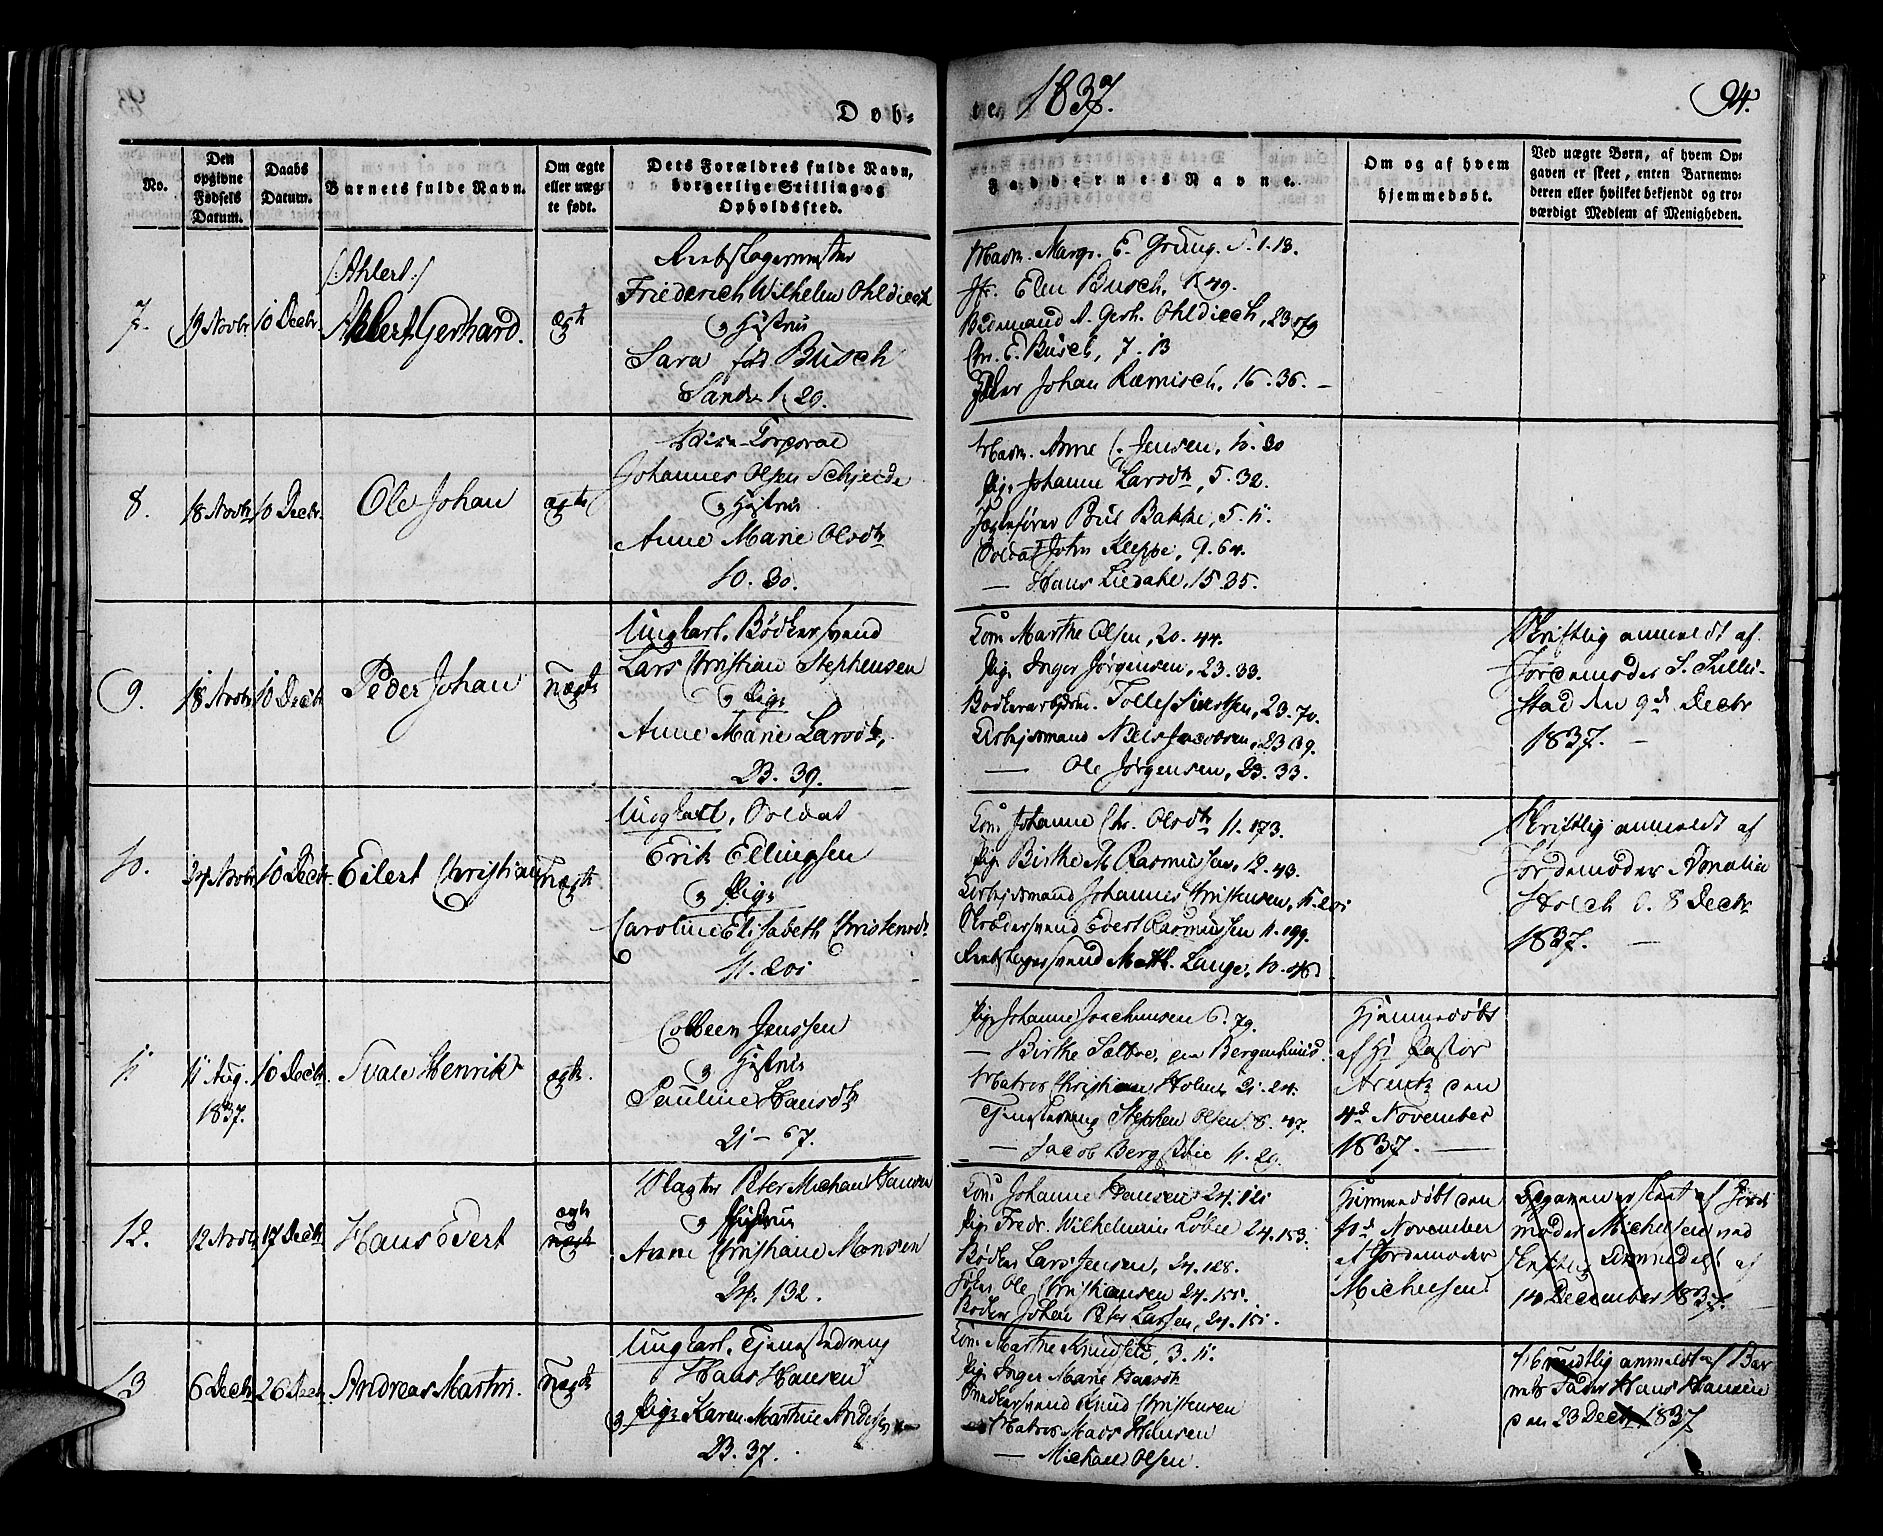 Døb-
te. 1837.
94.
No.
Den
opgivne
Fødsels
Datum.
Daabs
Datum.
Barnets fulde Navn.
Om ægte
eller uæg-
te født.
Dets Forældres fulde Navn,
borgerlige Stilling og
Opholdssted.
Faddernes Navne.
Om og af hvem
hjemmedøbt.
Ved uægte Børn, af hvem Op-
gaven er skeet, enten Barnemo-
deren eller hvilket bekjendt og tro-
værdigt Medlem af Menigheden.
7. 19 Novbr 10 Decbr.
(:Ahlert:)
Ahlert Gerhard.
ægte
Friederich Wilhelm Ohldieck
og Hustrue
Sara fød Busch
Sands 1. 29.
Madm. Margr. E. Grung. S. 1. 13.
Jfr. Elen Busch, 1. 49.
Bødkermand A. Gerh. Ohldieck, 23. 79
Chr. E. Busch, 7. 13
Johan Ræmisch, 16. 36.
8. 18 Novbr 10 Decbr.
Ole Johan
ægte
Corporal
Johannes Olsen
og Hustrue
Anne Marie Olsdtr
10. 30.
Madm. Anne C. Jensen, 10. 30
Pig. Johanne Larsdtr, 5. 32.
Bakke, 5. 11.
Soldat John Kleppe, 9. 64.
— Hans Liedahl, 15. 35.
9. 18 Novbr 10 Decbr
Peder Johan
uægte
Ungkarl, Bødkersvend
Lars Christian Stephensen
og Pige
Anne Marie Larsdtr,
23. 39.
Kone Marthe Olsen, 20. 44.
Pig. Inger Jørgensen, 23. 33.
Sivertsen, 23. 70.
Arbejdsmand Niels Jacobsen, 23. 39.
— Ole Jørgensen, 23. 33.
Skriftlig anmeldt af
Jordemoder S.
stad den 9de Decbr
1837. —
10. 24 Novbr 10 Decbr.
Eilert Christian
uægte
Ungkarl, Soldat
Erik Ellingsen
og Pige
Caroline Elisabeth Christensdtr
11. 201
Kone Johanne Chr. Olsdtr 11. 173.
Pig. Birthe M. Rasmussen, 12. 43.
Arbejdsmand Johannes Christensen, 11. 201
Skrædersvend Edert Rasmussen 11. 199.
Rebslagersvend Math. Lange, 10. 46.
Skriftlig anmeldt af
Jordemoder Amalia
Holch d. 8 Decbr
1837. —
11. 11 Aug.
1837.
10 Decbr.
Svale Henrik
ægte.
Colbeen Jenssen
og Hustrue
Pauline Hansdtr
21 - 67.
Pig. Johanne Joachimsen 6. 79.
— Birthe Sælbøe, paa Bergenhuus.
Matros Christian Holm, 21. 24.
Tjenestedreng Stephen Olsen 8. 47.
— Jacob 11. 20.
Hjemmedøbt
af Hr. Pastor
Arentz den
4de November
1837. —
12. 12 Novbr 17 Decbr
Hans Edert
ægte
uægte
Slagter Peter Michael Hansen
og Hustrue
Anne Christiane Monsen
24. 132.
Kone Johanne Hansen 24. 121
Pig. Fredr. Wilhelmine Løbie 24. 153.
Bødker Lars Jensen, 24. 128.
Ole Christiansen 24. 151.
Bødker Johan Peter Larsen, 24. 151.
Hjemmedøbt den
November
af Jordemoder
Michelsen
Opgaven er skeet af Jorde
moder Michelsen ved
skriftlig Anmeldelse af
14 December 1837.
13 6 Decbr 26 Decbr.
Andreas Martin.
uægte
Ungkarl, Tjenestedreng
Hans Hansen
og Pige Karen Martine Anders
23. 37.
Kone Marthe Knudsen, 3. 11.
Pig. Inger Marie
Snedkersvend Knud Christensen
Matros Mads Hansen
— Michael Olsen.
Mundtlig anmeldt af Bar
nets Fader Hans Hansen
den 23 Decbr 1837